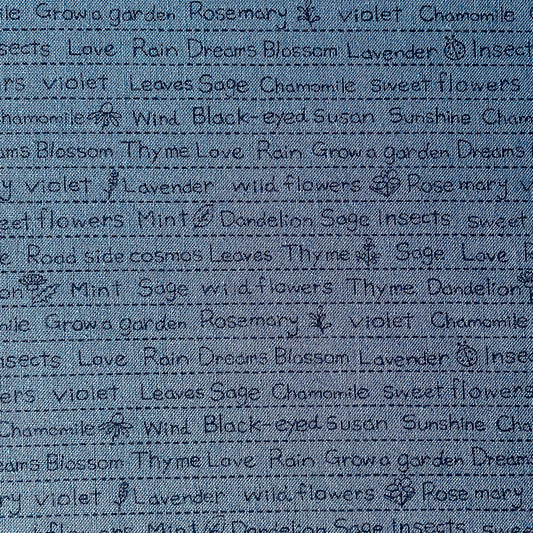 ile Grow a garden Rosemary violet Chamomile
sects Love Rain Dreams Blossom Lavender Insect
rs violet Leaves Sage Chamomile sweet flowers
hamomile Wind Black-eyed Susan Sunshine Cham
ams Blossom Thyme Love Rain Grow a garden Dreams
y violet Lavender wild flowers Rosemary v
eet flowers Mint Dandelion Sage Insects sweet
e Road side cosmos Leaves Thyme Sage Love R
on Mint Sage wild flowers Thyme Dandelion
mile Grow a garden Rosemary violet Chamomile
nsects Love Rain Dreams Blossom Lavender Insec
ers violet Leaves Sage Chamomile sweet flowers
Chamomile Wind Black-eyed Susan Sunshine Cha
eams Blossom Thyme Love Rain Grow a garden Dream
ry violet Lavender wild flowers Rosemary
flowers Mint Dandelion Sage Insects swee